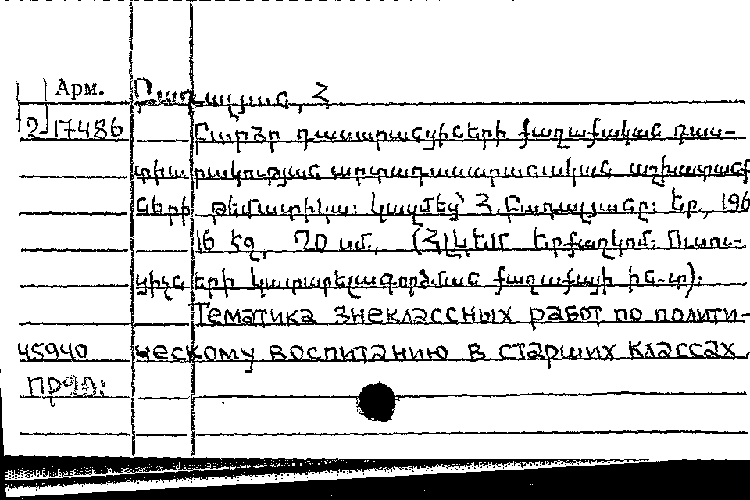 Арм. Բադալյան, Հ
2-17486 Բարձր դասարանցիների քաղաքական դաս-
տիարակության արտադասարանական աշխատանք
ների թեմատիկա: Կազմեց՝ Հ. Բադալյանը: Եր., 196
16 էջ, 70 սմ, (ՀԼԿԵՄ Երքաղկոմ: Ուսու-
ցիչների կատարելագործման քաղաքայի ին-տ):
Тематика внеклассных работ по полити-
45940 ческому воспитанию в старших классах.